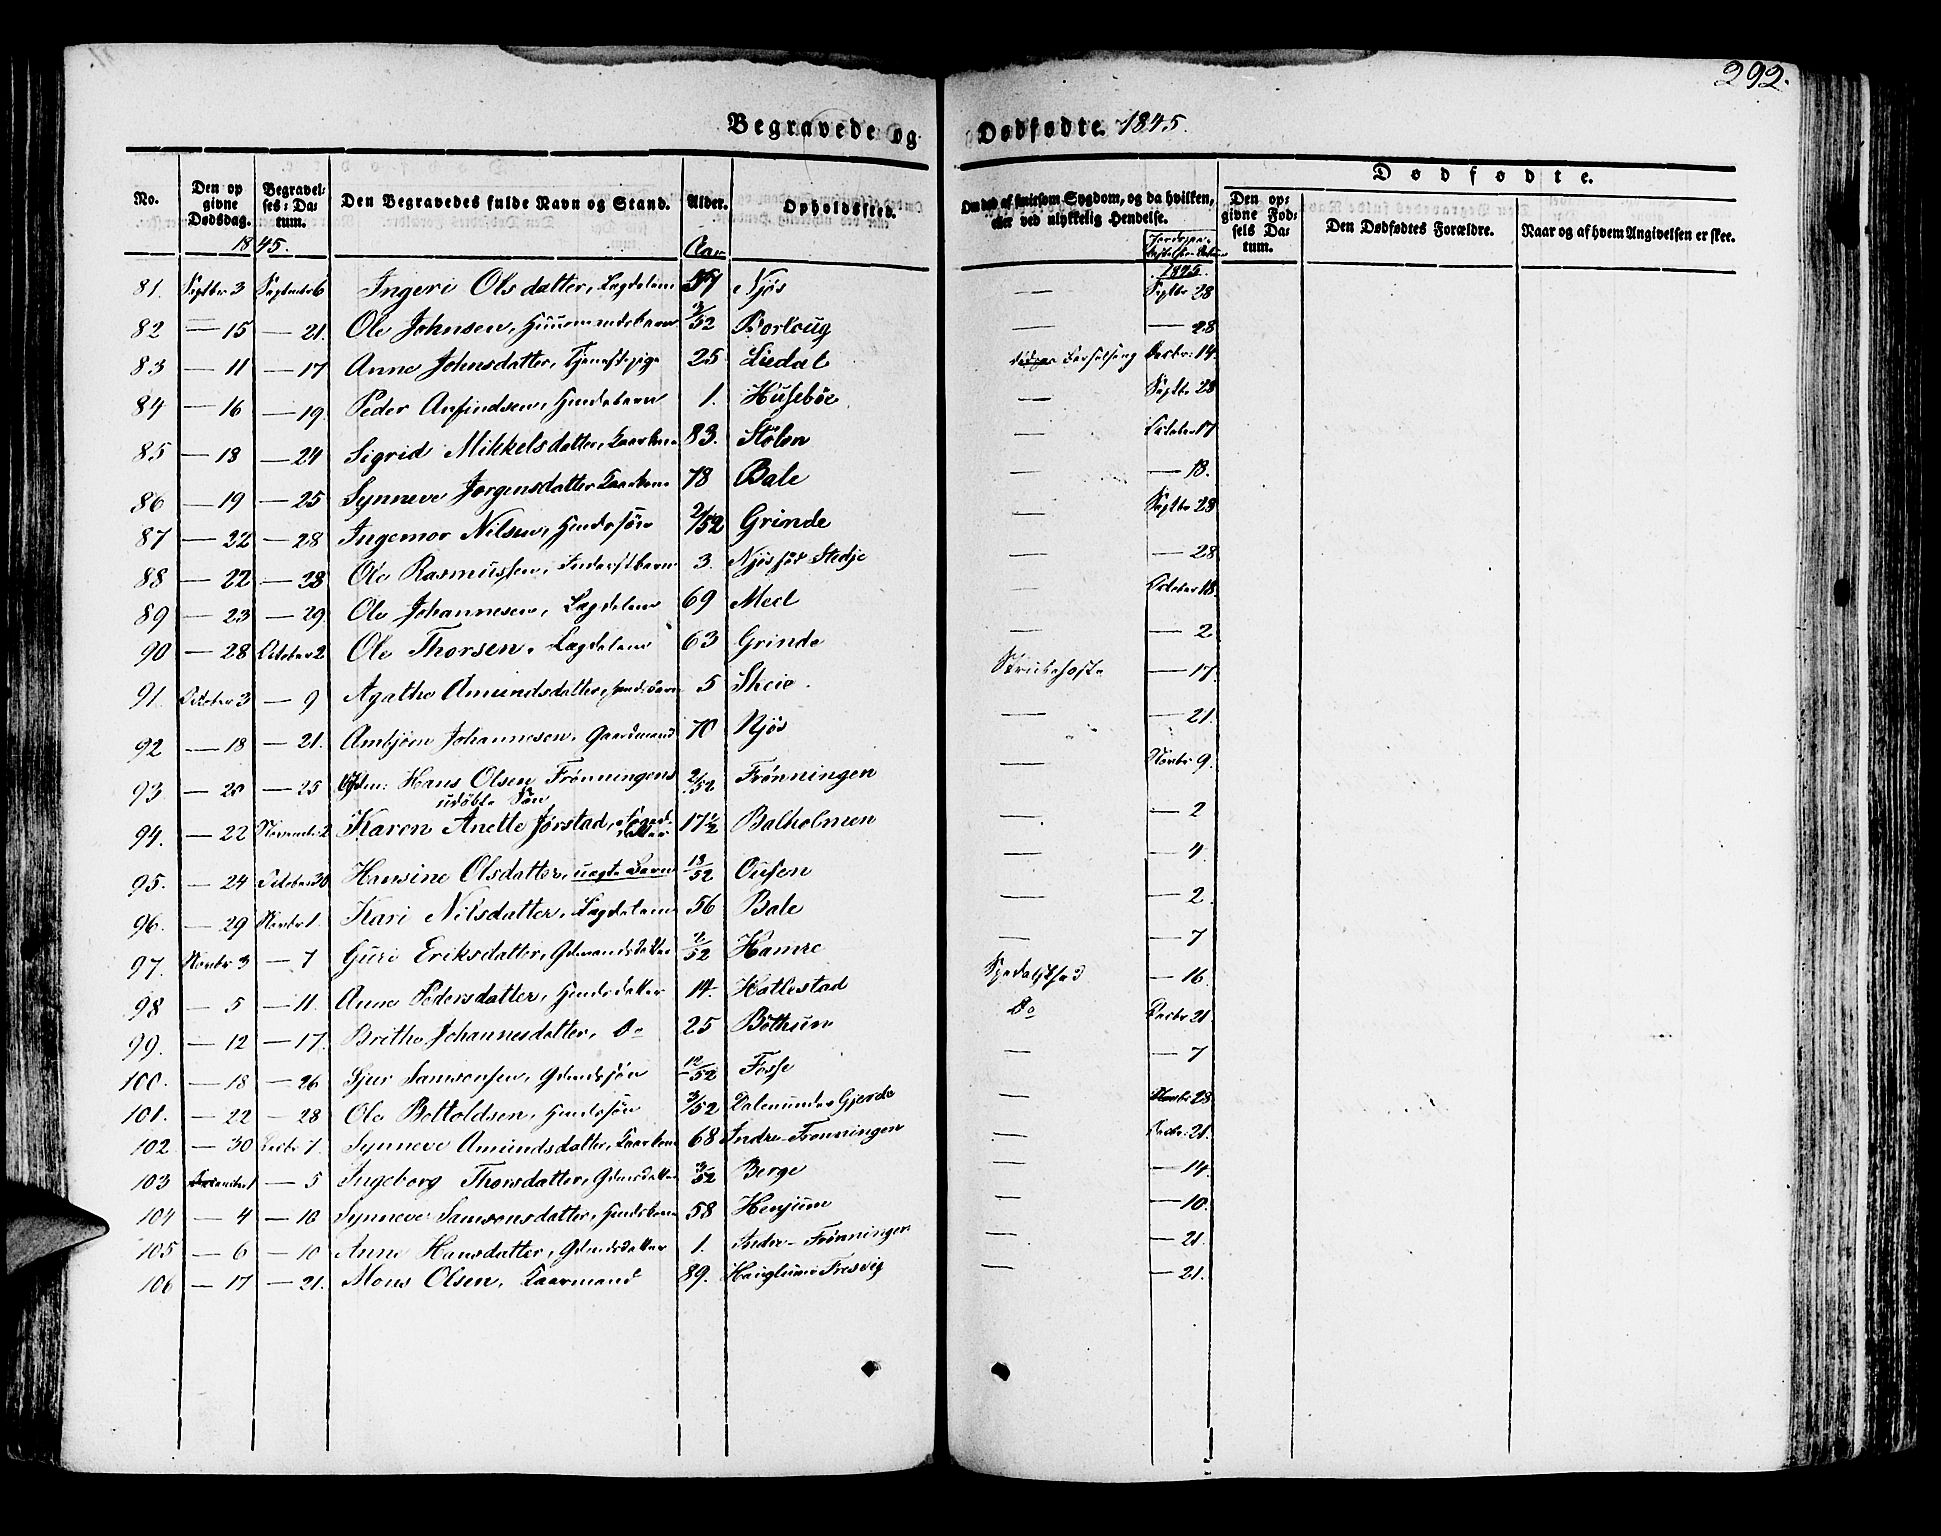 292.
Begravede og Dødfødte. 1845.
No.
Den opgivne Dødsdag.
Begravelses-Datum.
Den Begravedes fulde Navn og Stand.
Alder.
Opholdssted.
Om død af smitsom Sygdom, og da hvilken, eller ved ulykkelig Hendelse.
Dødfødte.
Den opgivne Fødsels Datum.
Den Dødfødtes Forældre.
Naar og af hvem Angivelsen er skee.
1845. Aar 1845.
81. Septber 3 September 6 Ingeri Olsdatter, Lægdelem Njøs — Septbr 28
82 — 15 — 21. Ole Johnsen, Huusmandsbarn 3/52 Borloug — — 28
83 — 11 — 17 Anne Johnsdatter, Tjenestepige 25 Liedal Decbr: 14.
84 — 16 — 19. Peder Anfindsen, 1. Husebøe — Septbr 28
85 — 18 — 24 Sigrid Mikkelsdatter, Kaarkone 83. Stølen — October 17
86 — 19 — 25 Synneve Jørgensdatter Kaarkone 78 Bale — — 18.
87 — 22 — 28 Ingemor Nilsen, 2/52 Grinde — Septbr 28
88 — 22 — 28 Ole Rasmussen, 3. Njøs for Stedje — — 28
89 — 23 — 29 Ole Johannesen, Lægdelem 69 Meel — October 18.
90 — 28 October 2 Ole Thorsen, Lægdelem 63 Grinde — — 2
91. October 3 — 9 Agatha Amundsdatter, 5 Skeie. Strubehoste — 17
92 — 18 — 21. Ambjørn Johannesen, Gaardmand 70 Njøs — — 21.
93 — 20 — 25 Hans Olsen Frønningens udøbte Søn 2/52 Frønningen — Novbr 9.
94. — 22 November 2 Karen Anette Jørstad, 17 1/2 Balholmen — — 2
95. — 24 October 30 Hansine Olsdatter, uægte Barn 13/52 Ousen — — 4.
96. — 29 Novbr 1. Kari Nilsdatter, Lægdelem 56 Bale — — 2.
97. Novbr 3 — 7 Guri Eriksdatter, Gdmandsdatter 2/52 Hamre — — 7
98 — 5 — 11. Anna Pedersdatter, Hmdsdatter 14. Hatlestad Spedalskhed — 16
99. — 12 — 17. Britha Johannesdatter, Do 25 Bøthun Do Decbr 21.
100. — 18 — 26 Sjur Samsonsen, Gdmdssøn 12/52 Fosse — — 7
101. — 22 — 28 Ole Bottoldsen, Hmdssøn 3/52 Dalen under Gjerde — Novbr 28.
102 — 30 Decbr 7. Synneve Amundsdatter, Kaarkone 68 Indre-Frønningen — Decbr: 21.
103 December 1 — 5 Ingeborg Thorsdatter, Gdmdsdatter 3/52 Berge — — 14.
104 — 4 — 10 Synneve Samsonsdatter, Hmdskone 58 Henjum — — 10.
105 — 6 — 10 Anne Hansdatter, Gdmdsdatter 1. Indre-Frønningen — — 21.
106 — 17 — 21. Mons Olsen, Kaarmand 89. Hauglum i Fresvig — — 21.